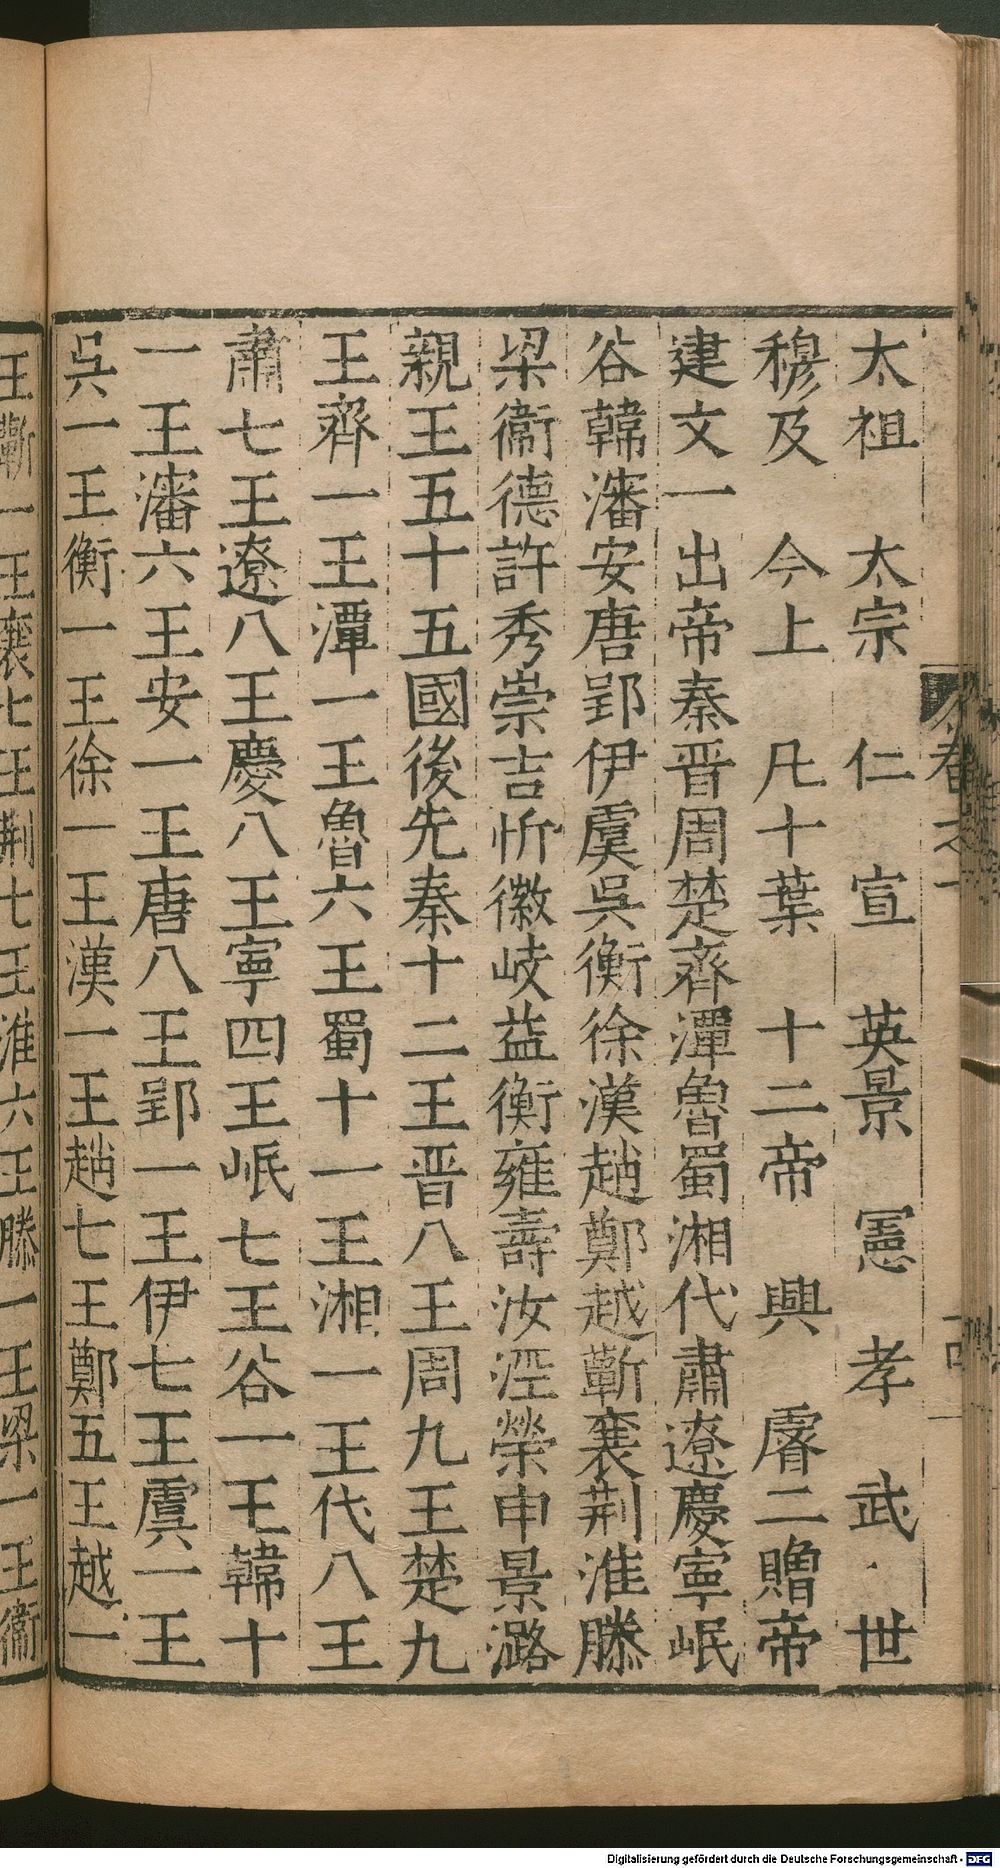 太祖　太宗　仁　宣　英景　憲　孝　武　世
穆及　今上　凡十葉　十二帝　興　睿二贈帝
建文一出帝秦晋周楚齊潭魯蜀湘代肅遼慶寧岷
谷韓瀋安唐郢伊虞吳衡徐漢趙鄭越蘄襄荆淮滕
梁衞德許秀崇吉忻徽岐益衡雍壽汝涇榮申景潞
親王五十五國後先秦十二王晋八王周九王楚九
王齊一王潭一王魯六王蜀十一王湘一王代八王
肅七王遼八王慶八王寧四王岷七王谷一王韓十
一王瀋六王安一王唐八王郢一王伊七王虞一王
吳一王衡一王徐一王漢一王趙七王鄭五王越一
王蘄一王襄七王荆七王淮六王滕一王梁一王衞
Digitalisierung gefördert durch die Deutsche Forschungsgemeinschaft - DFG